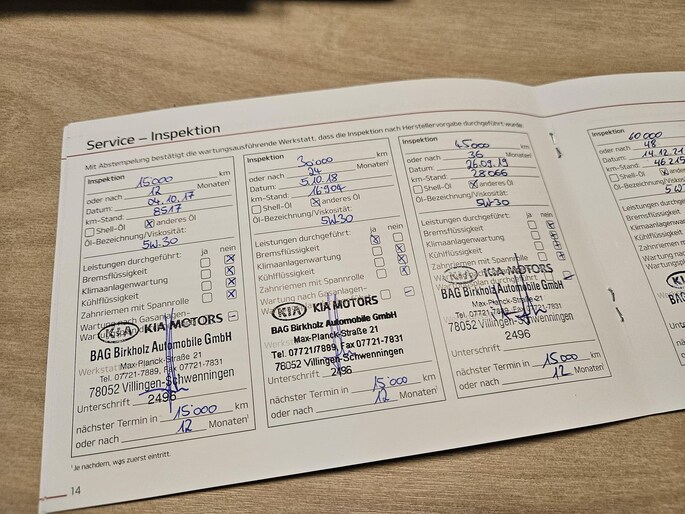 Service – Inspektion
Mit Abstempelung bestätigt die wartungsausführende Werkstatt, dass die Inspektion nach Herstellervorgabe durchgeführt wurde.
Inspektion 15000 km
oder nach 12 Monaten¹
Datum: 04.10.17
km-Stand: 8517
Shell-Öl anderes Öl
Öl-Bezeichnung/Viskosität:
5W-30
Leistungen durchgeführt: ja nein
Bremsflüssigkeit
Klimaanlagenwartung
Kühlflüssigkeit
Zahnriemen mit Spannrolle
Wartung nach Gasanlagen-
KIA KIA MOTORS
BAG Birkholz Automobile GmbH
Max-Planck-Straße 21
Tel. 07721-7889, Fax 07721-7831
78052 Villingen-Schwenningen
Unterschrift 2496
nächster Termin in 15000 km
oder nach 12 Monaten¹
Inspektion 30000 km
oder nach 24 Monaten¹
Datum: 5.10.18
km-Stand: 16904
Shell-Öl anderes Öl
Öl-Bezeichnung/Viskosität:
5W30
Leistungen durchgeführt: ja nein
Bremsflüssigkeit
Klimaanlagenwartung
Kühlflüssigkeit
Zahnriemen mit Spannrolle
Wartung nach Gasanlagen-
KIA KIA MOTORS
BAG Birkholz Automobile GmbH
Max-Planck-Straße 21
Tel. 07721/7889, Fax 07721-7831
78052 Villingen-Schwenningen
Unterschrift 2496
nächster Termin in 15000 km
oder nach 12 Monaten¹
Inspektion 45000 km
oder nach 36 Monaten¹
Datum: 26.09.19
km-Stand: 28066
Shell-Öl anderes Öl
Öl-Bezeichnung/Viskosität:
5W-30
Leistungen durchgeführt: ja nein
Bremsflüssigkeit
Klimaanlagenwartung
Kühlflüssigkeit
Zahnriemen mit Spannrolle
KIA KIA MOTORS
BAG Birkholz Automobile GmbH
Max-Planck-Straße 21
Tel. 07721-7889, Fax 07721-7831
78052 Villingen-Schwenningen
2496
Unterschrift
nächster Termin in 15000 km
oder nach 12 Monaten¹
Inspektion 60000
oder nach 48
Datum: 14.12.21
km-Stand: 46215
Shell-Öl
Öl-Bezeichnung/Visk
Leistungen durchge
Bremsflüssigkeit
Klimaanlagenwartu
Kühlflüssigkeit
Zahnriemen mit
BAG Bi
¹ Je nachdem, was zuerst eintritt.
14